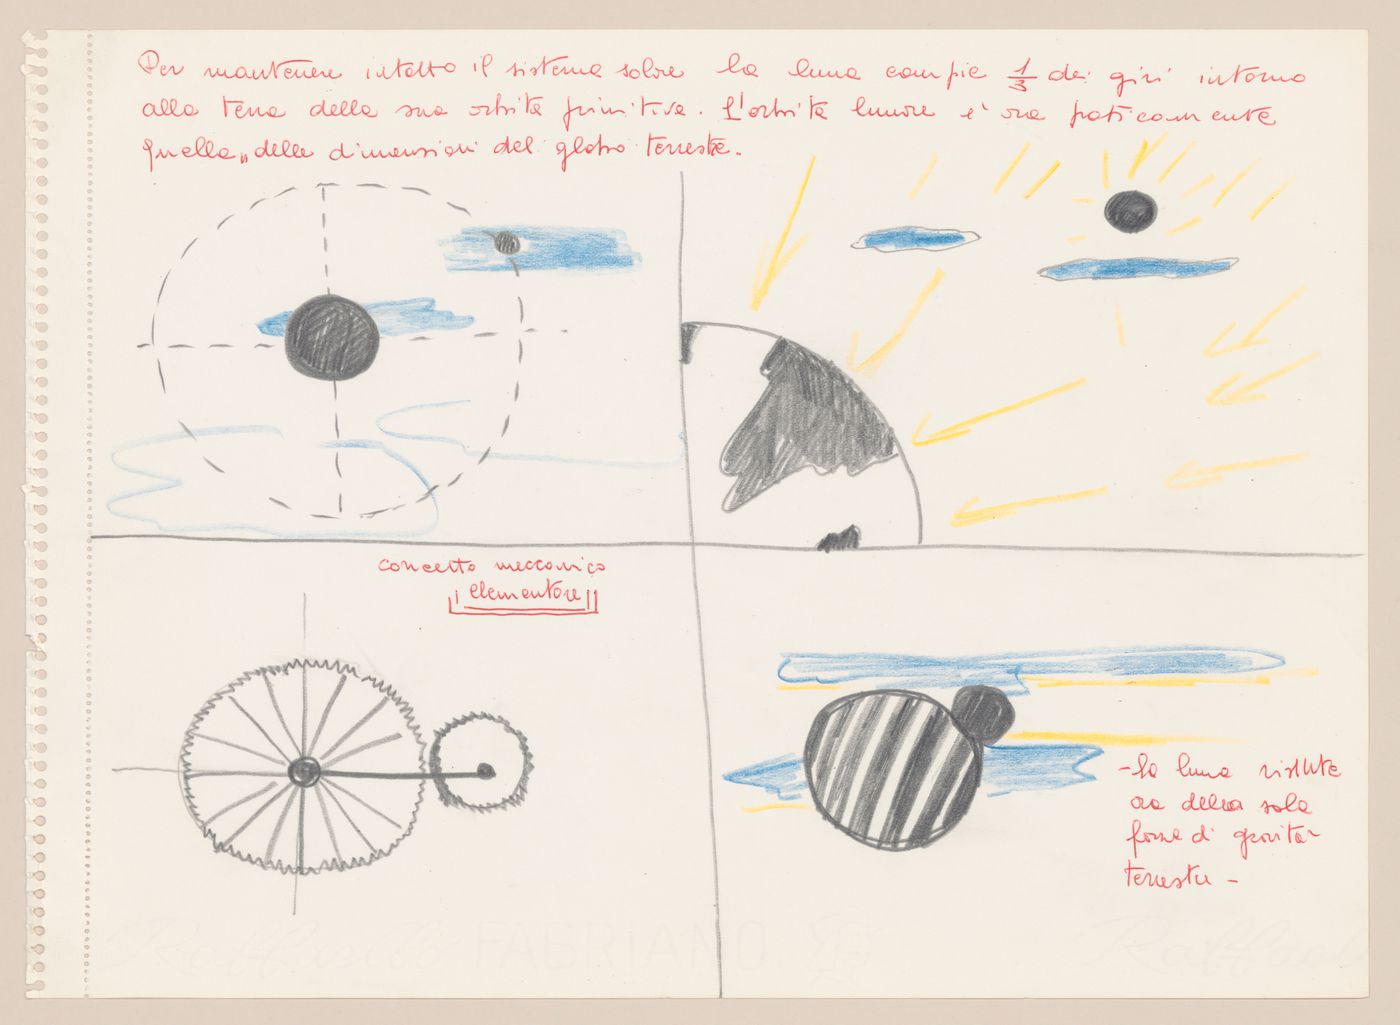 Per mantenere intatto il sistema solare la luna compie 1/3 dei giri intorno
alla terra della sua orbita primitiva. L'orbita lunare è ora praticamente
quella delle dimensioni del globo terrestre.
concetto meccanico
elementare
- la luna risulta
ora della sola
forza di gravità
terrestre -
Raffaello FABRIANO
Raffael